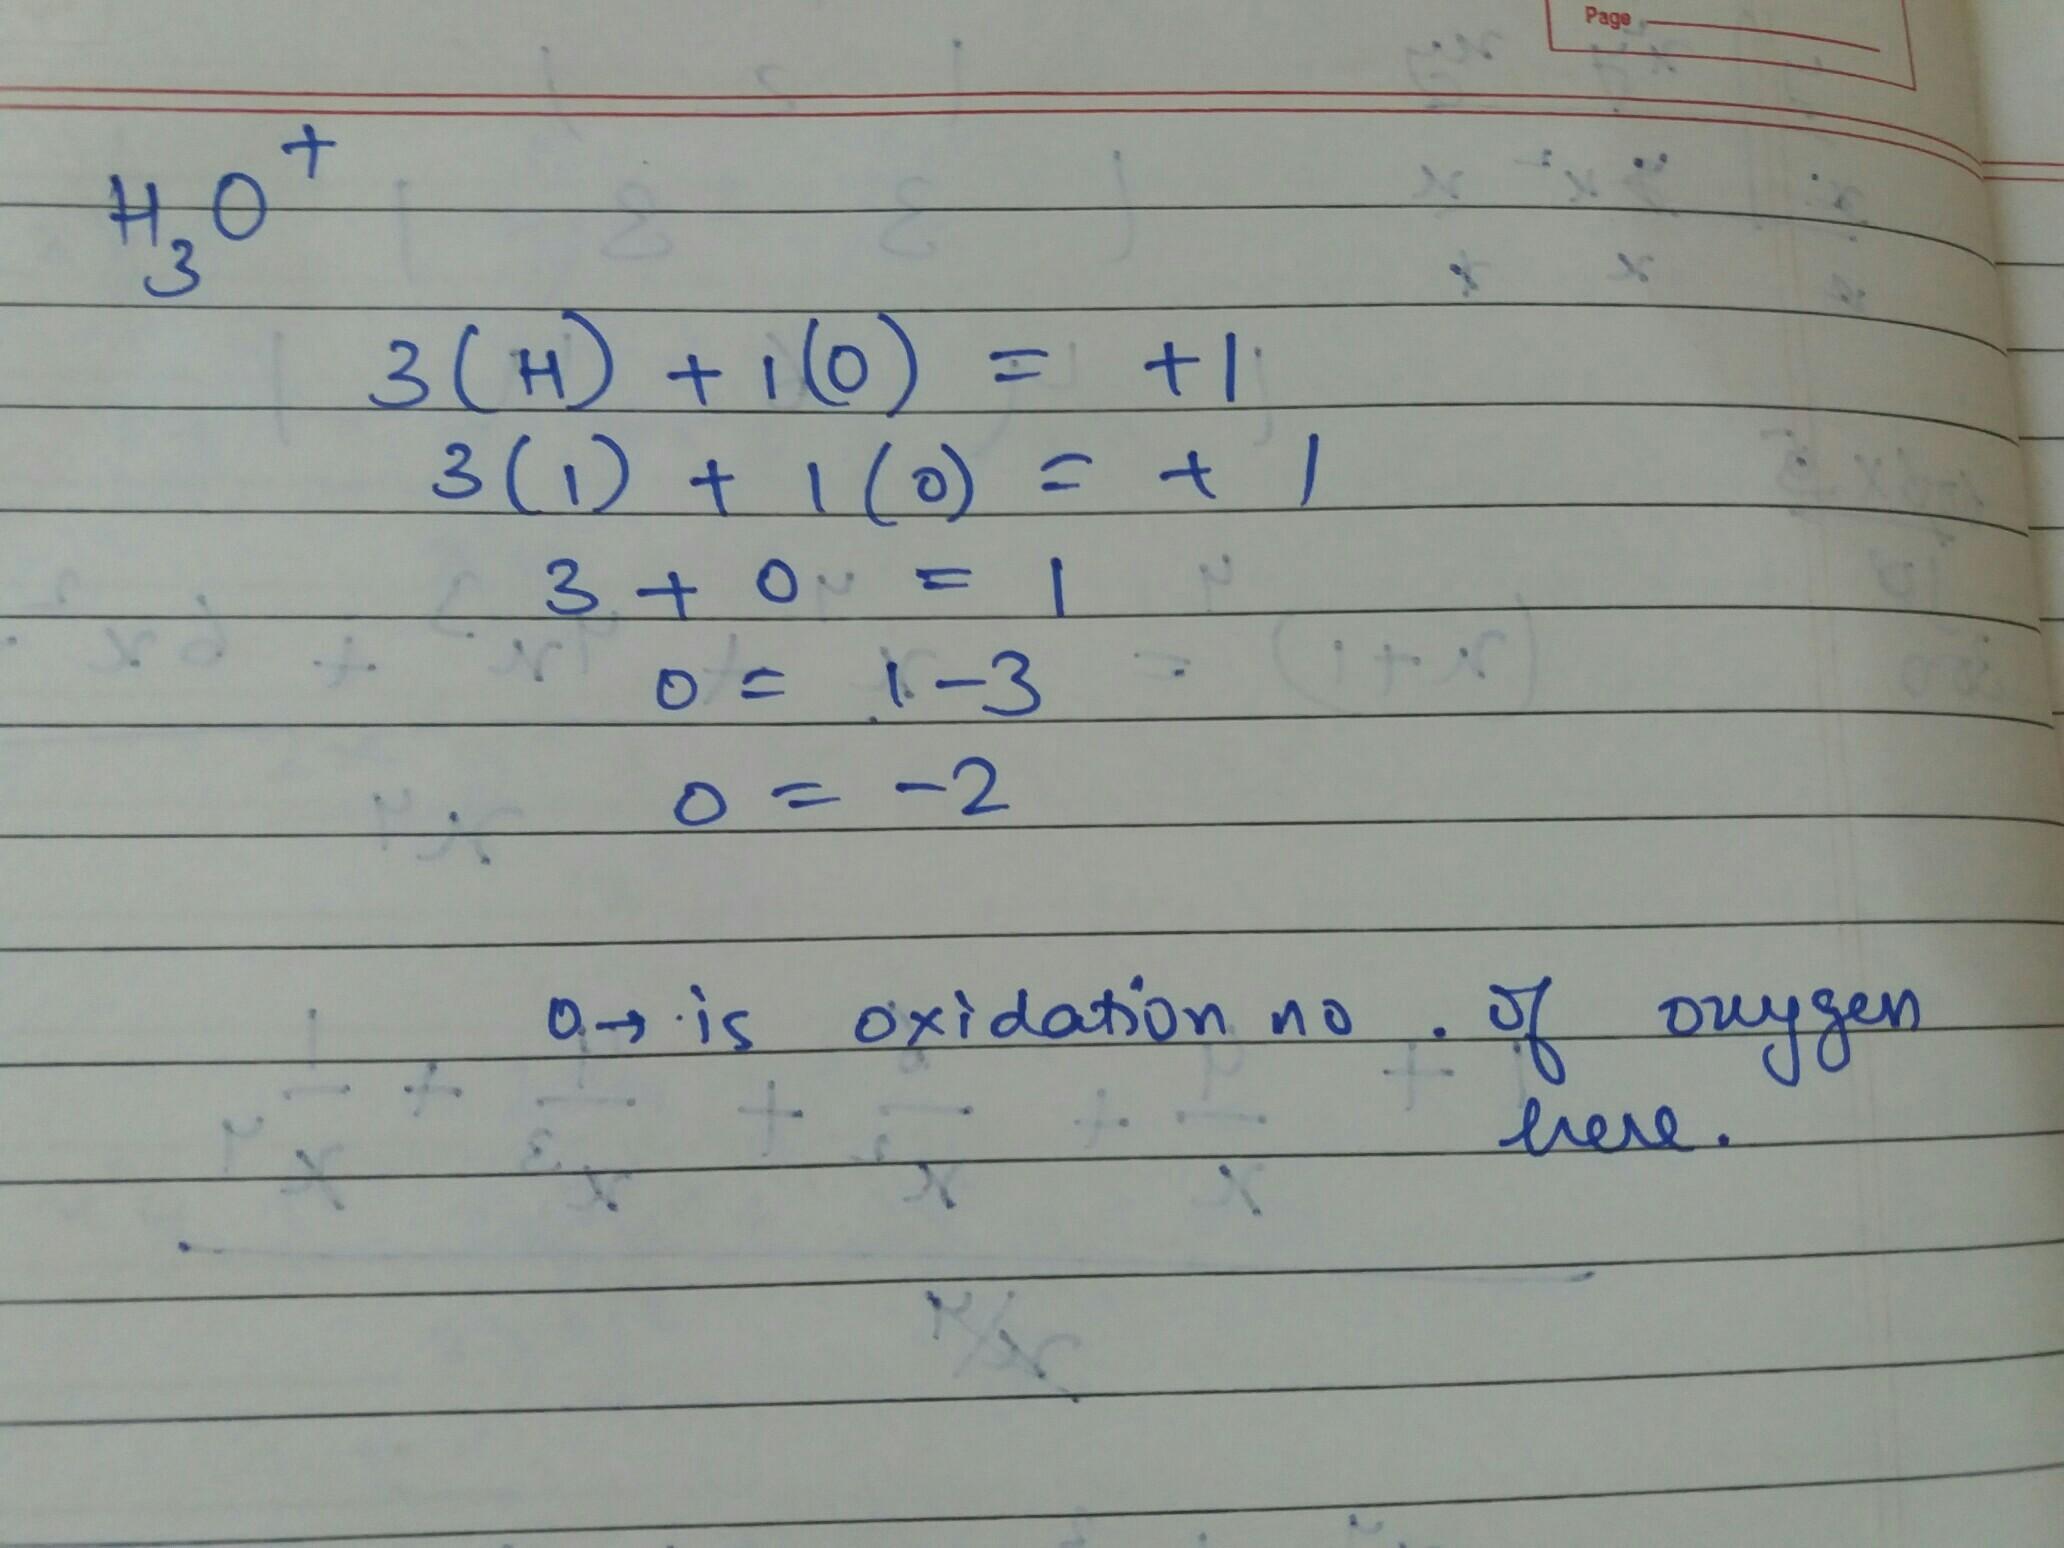 Page
H₃O⁺
3(H) + 1(O) = +1
3(1) + 1(O) = +1
3 + O = 1
O = 1-3
O = -2
O → is oxidation no. of oxygen
here.